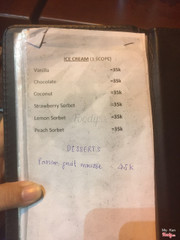 ICE CREAM (2 SCOOPS)
Vanilla 35k
Chocolate 35k
Coconut 35k
Strawberry Sorbet 35k
Lemon Sorbet 35k
Peach Sorbet 35k
DESSERTS
Passion fruit mousse - 45k